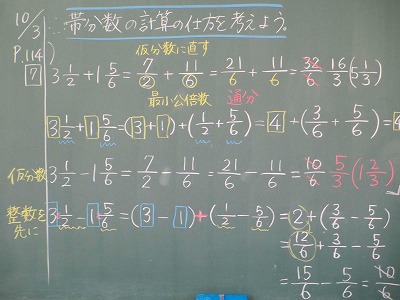 10/3 帯分数の計算の仕方を考えよう。
P.114) 仮分数に直す
7 3 1/2 + 1 5/6 = 7/2 + 11/6 = 21/6 + 11/6 = 32/6 16/3 (5 1/3)
最小公倍数 通分
3 1/2 + 1 5/6 = (3+1) + (1/2 + 5/6) = 4 + (3/6 + 5/6) = 4
仮分数 3 1/2 - 1 5/6 = 7/2 - 11/6 = 21/6 - 11/6 = 10/6 5/3 (1 2/3)
整数を先に 3 + 1/2 - 1 5/6 = (3 - 1) + (1/2 - 5/6) = 2 + (3/6 - 5/6)
= 12/6 + 3/6 - 5/6
= 15/6 - 5/6 = 10/6